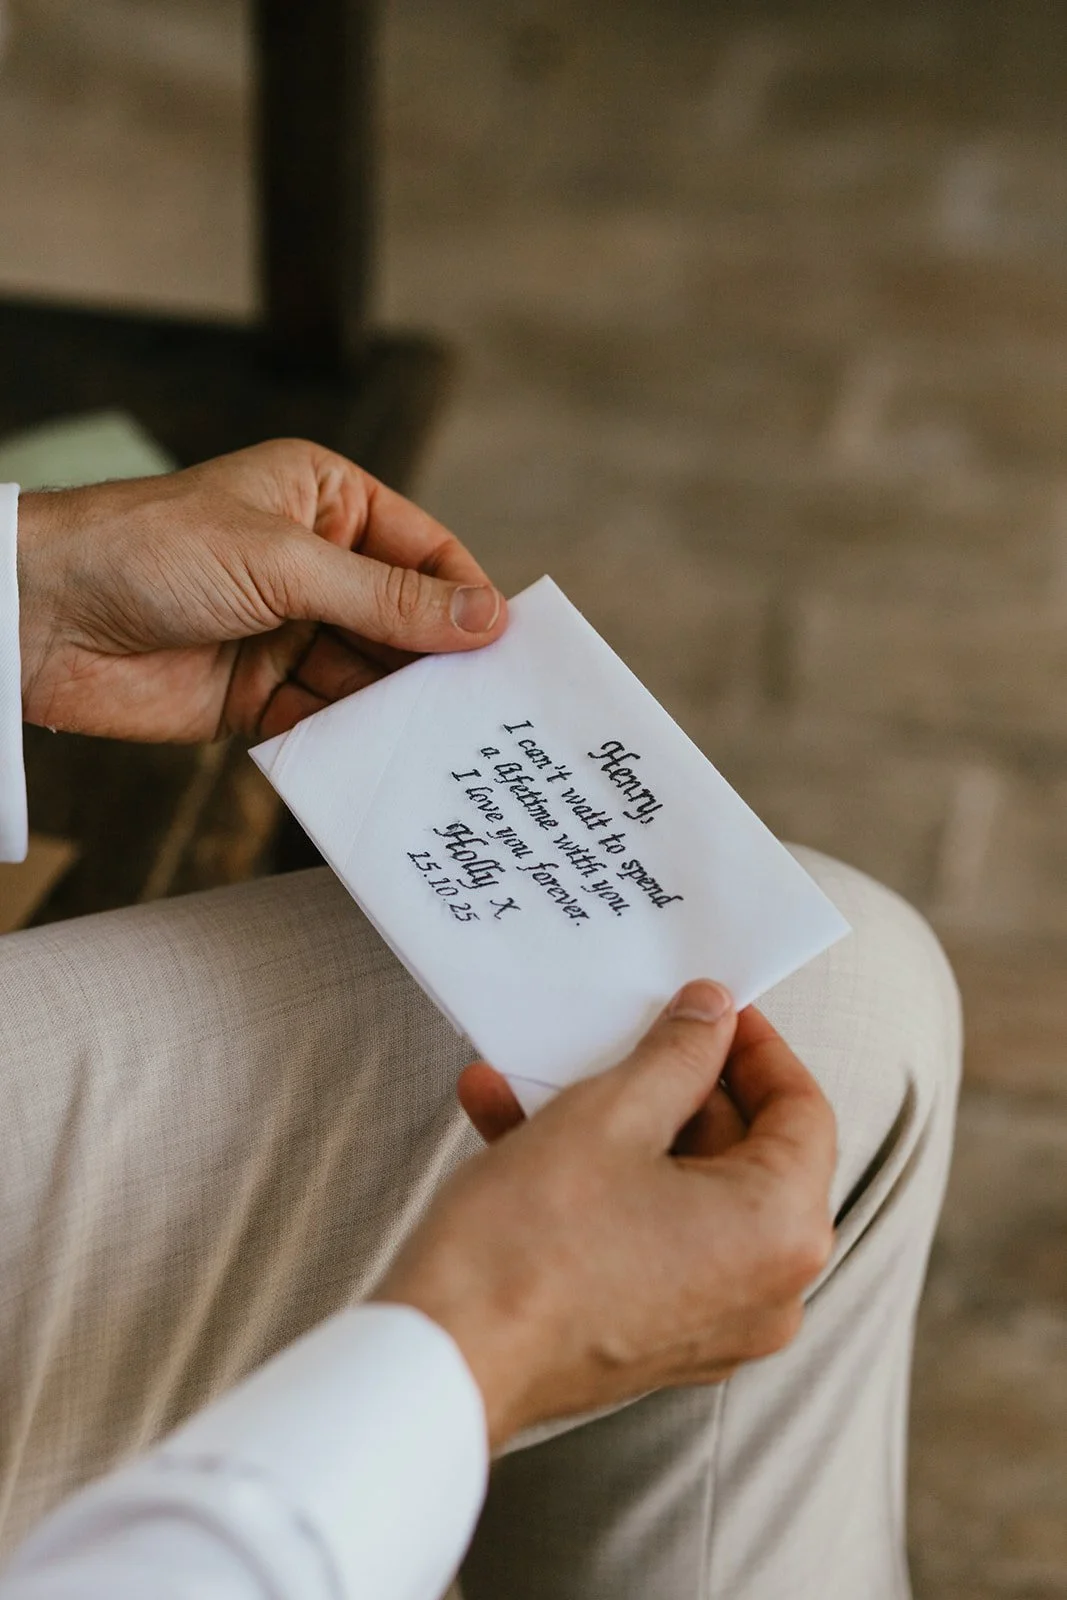 Henry,
I can't wait to spend
a lifetime with you.
I love you forever.
Holly X
15.10.25